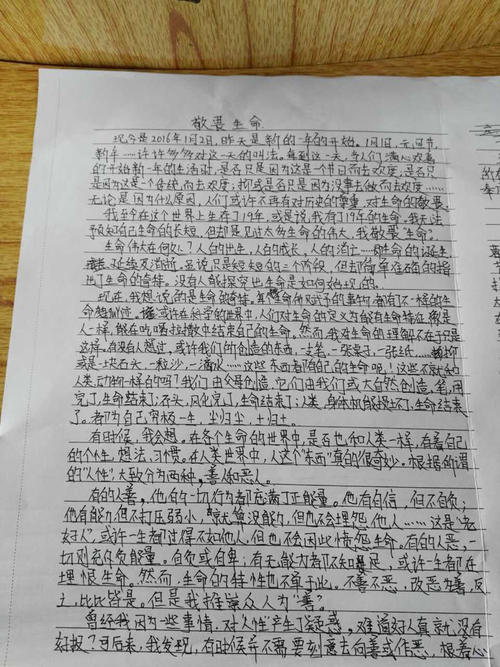 敬畏生命
现今是2016年1月2日,昨天是新的一年的开始。1月1日,元旦节,
新年……许许多多对这一天的叫法。每到这一天,令人们满心欢喜
的开始新一年的生活时,是否只是因为这是个节日而去欢度,是否只
是因为这是个传统,而去欢度;抑或是否只是因为没事去做而去欢度……
无论是因为什么原因,人们或许不再有对历史的尊重,对生命的敬畏
我至今在这个世界上生存了19年,或是说,我有了19年的生命,我无法
预知自己生命的长短,但却是见过太多生命的伟大,我敬畏生命。
生命伟大在何处?人的出生,人的成长,人的消亡……即生命的诞生
延续及消逝。虽说只是短短的三个阶段,但却简单在确的指
出了生命的奇特。没有人能探究出生命是如何出现的。
现在,我想说的是生命的奇特。其生命和赋予的事物都有不一样的生
命想物证。或许在科学的世界中,人们对生命的定义为能有生命特征像是
人一样,能在吃喝拉撒中结束自己的生命。然而,我对生命的理解不在于只是
这样。有没有人想过,或许我们所创造的东西,一支笔,一张桌子,一张纸……抑
或是一块石头,一粒沙,一滴水……这些东西都有自己的生命呢!这些不就和
人类、动物一样的吗?我们由父母创造,它们由我们或大自然创造,笔,用
完了,生命结束了;石头,风化完了,生命结束了;人类,身体机能损坏了,生命结束
了。都为自己穷极一生,尘归尘,土归土。
有时候,我会想。在各个生命的世界中,是否也和人类一样,存着自己
的个性,想法,习惯。在人类世界中,人这个“东西”真的很奇妙。根据所谓
的“人性”,大致分为两种,善人和恶人。
有的人善,他的一切行为都充满了正能量。他有自信,但不自负;
他有能力,但不打压弱小,就算没能力,但也不会埋怨他人……这是“老
好人”,或许一生都过得不如他人,但也不会因此愤怨生命。有的人恶,一
切则充斥负能量。自负或自卑;有无能力都不知满足,或许一生都在
埋恨生命。然而,生命的特性也不单于此。不善不恶,改恶为善,反
之,比比皆是。但是我推崇众人为“善”。
曾经我因为一些事情,对人性产生了疑惑。难道好人真就没有
好报?可后来,我发现,有时候并不需要刻意去向善或作恶,根着心